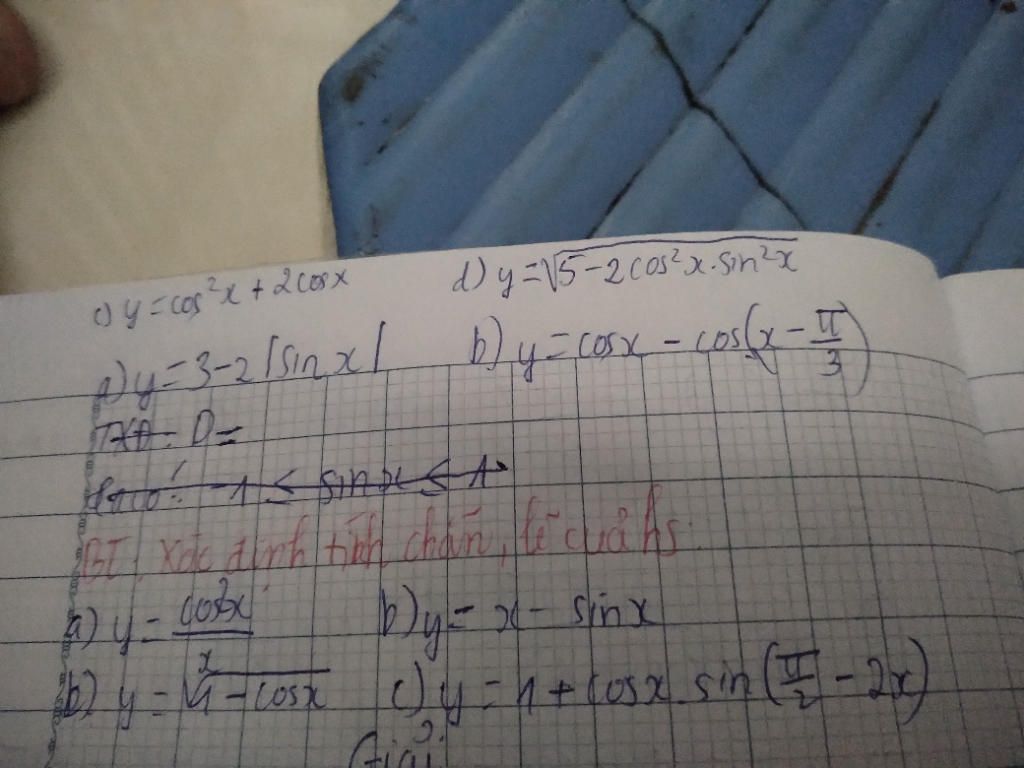 c) y = cos²x + 2cosx d) y = √5 - 2cos²x.sin²x
a) y = 3 - 2|sin x| b) y = cosx - cos(x - π/3)
TXĐ: D =
-1 ≤ sinx ≤ 1
BT: Xác định tính chẵn, lẻ của hs:
a) y = cos2x/x b) y = x - sinx
b) y = √1 - cosx c) y = 1 + cosx.sin(π/2 - 2x)
Giải